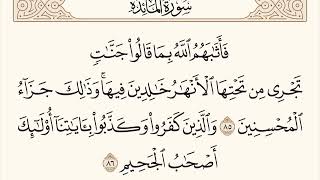 سُورَةُ المَائِدَةِ
فَأَثَٰبَهُمُ ٱللَّهُ بِمَا قَالُوا۟ جَنَّٰتٍ
تَجْرِى مِن تَحْتِهَا ٱلْأَنْهَٰرُ خَٰلِدِينَ فِيهَا ۚ وَذَٰلِكَ جَزَآءُ
ٱلْمُحْسِنِينَ ٨٥ وَٱلَّذِينَ كَفَرُوا۟ وَكَذَّبُوا۟ بِـَٔايَٰتِنَآ أُو۟لَٰٓئِكَ
أَصْحَٰبُ ٱلْجَحِيمِ ٨٦